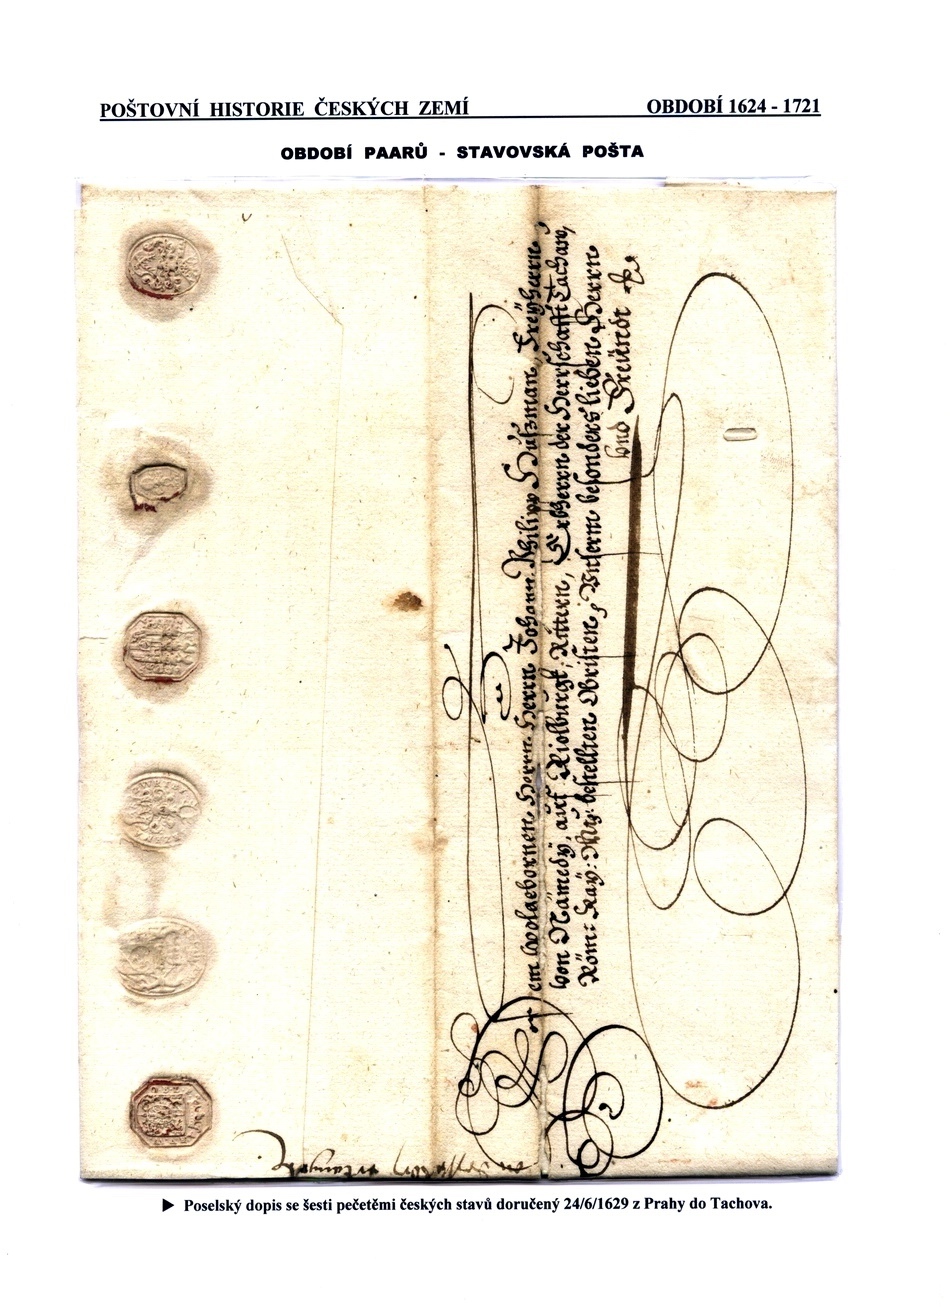 POŠTOVNÍ HISTORIE ČESKÝCH ZEMÍ OBDOBÍ 1624 - 1721
OBDOBÍ PAARŮ - STAVOVSKÁ POŠTA
Dem Wolgebornen Herrn Herrn Johann Philipp Hußman, Freÿherrn,
von Námedÿ, auf Riolburgk, Rittern, Erbherrn der Herrschafft Tachaw,
Röm: Kaÿ: Maÿ: bestellten Obristen, Unserm besonders lieben Herrn
und Freündt
► Poselský dopis se šesti pečetěmi českých stavů doručený 24/6/1629 z Prahy do Tachova.